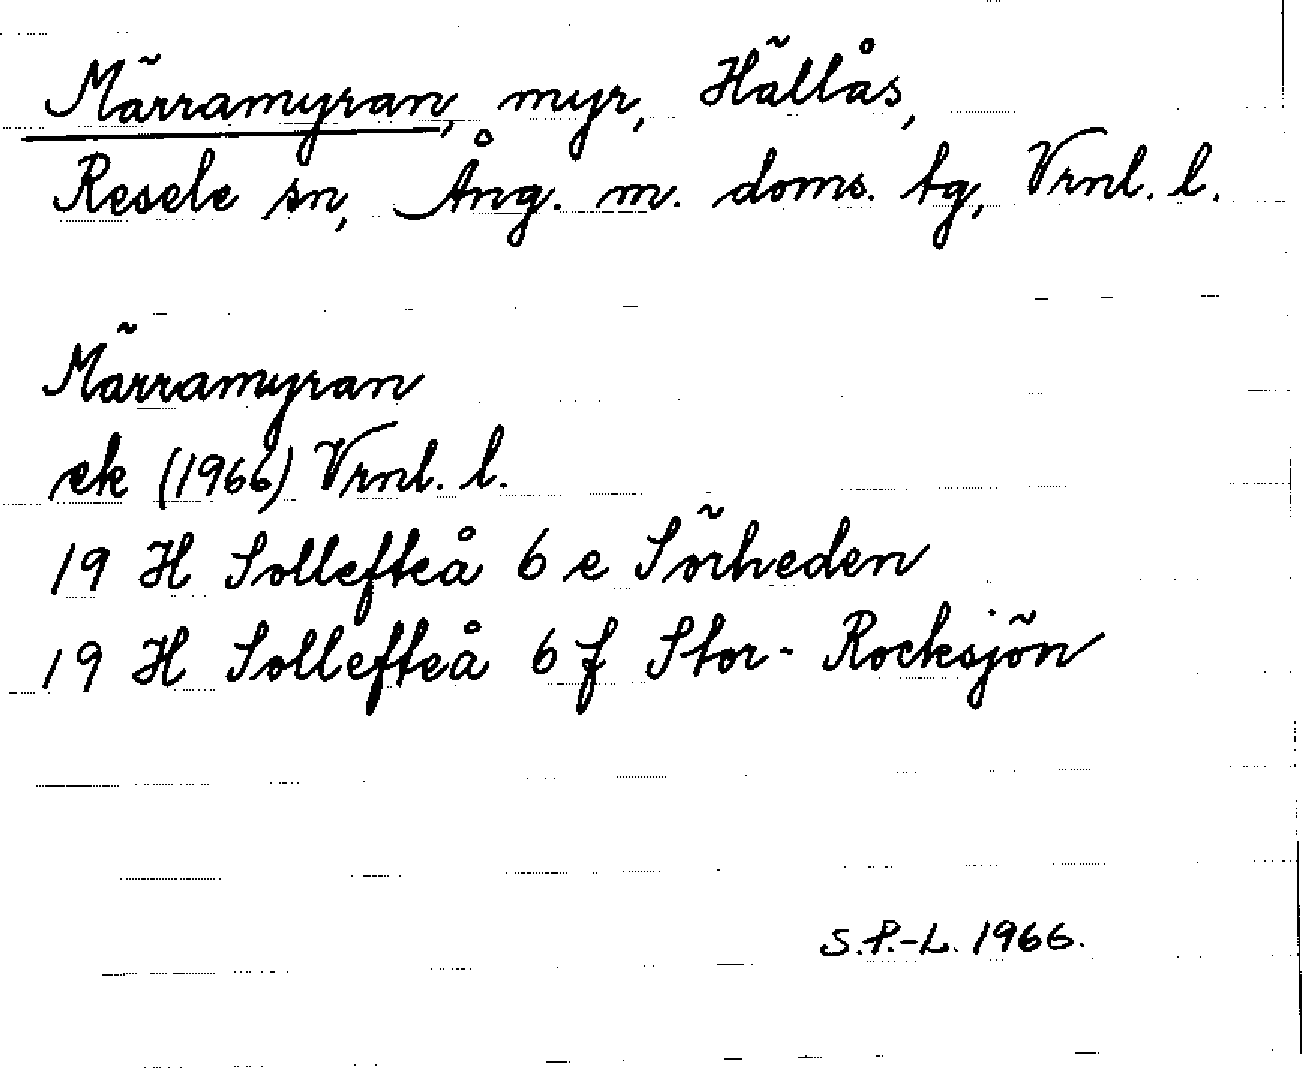 Märramyran, myr, Hällås,
Resele sn, Ång. m. doms. tg, Vrnl. l.
Märramyran
ek (1966) Vrnl. l.
19 H Sollefteå 6 e Sörheden
19 H Sollefteå 6 f Stor-Rocksjön
S.P.-L. 1966.